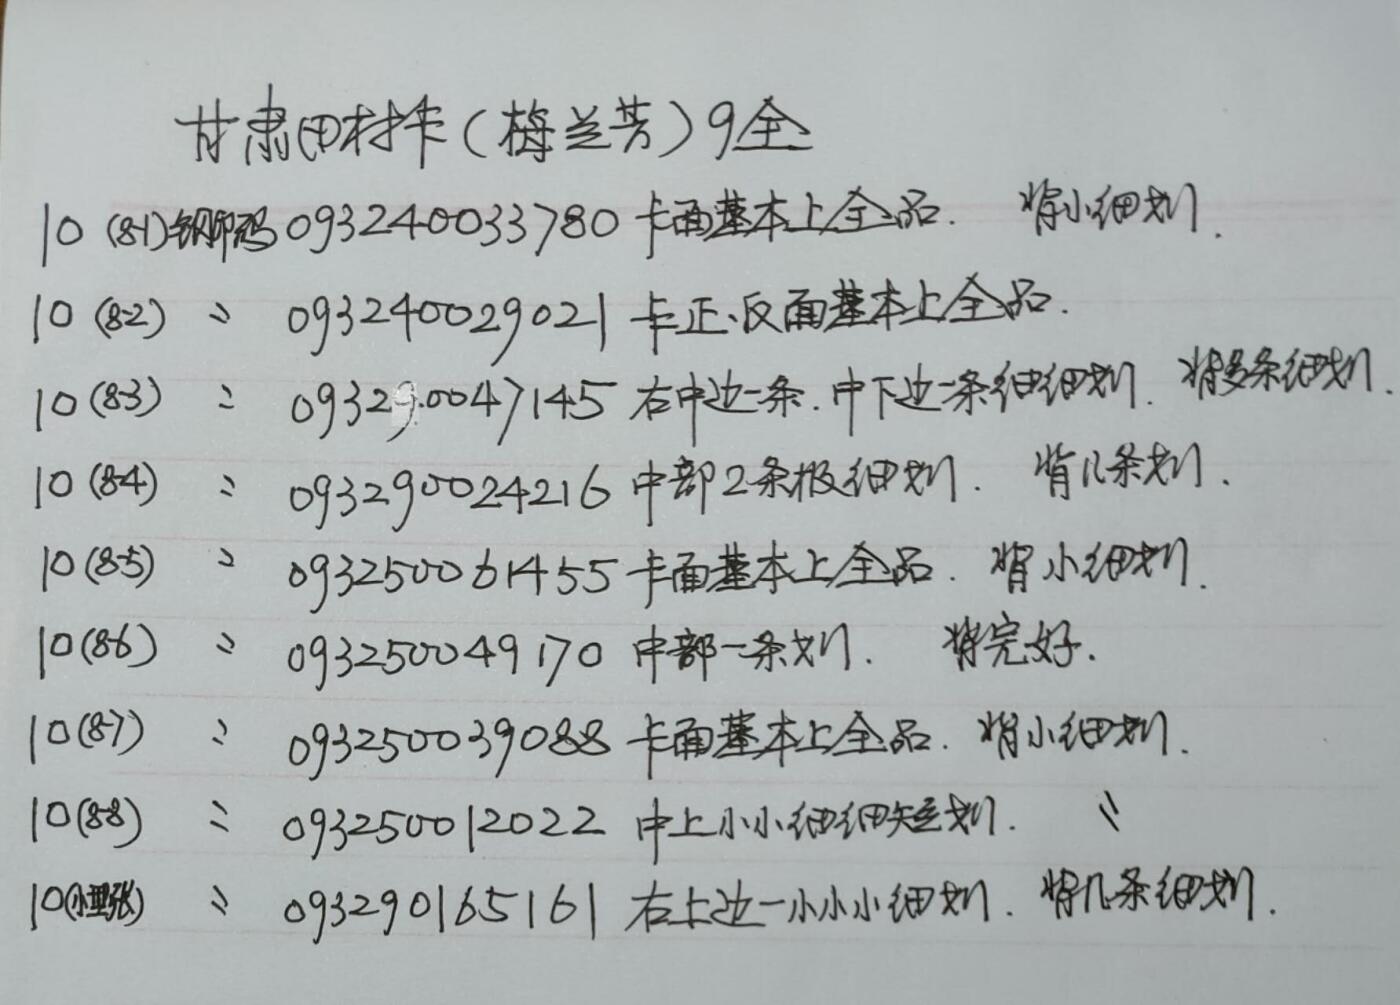 甘肃田村卡(梅兰芳)9全
10 (8-1)钢印码 093240033780 卡面基本上全品. 背小细划.
10 (8-2) 〃 093240029021 卡正、反面基本上全品.
10 (8-3) 〃 093290047145 右中边一条.中下边一条细细划. 背多条细划.
10 (8-4) 〃 093290024216 中部2条极细划. 背几条划.
10 (8-5) 〃 093250061455 卡面基本上全品. 背小细划.
10 (8-6) 〃 093250049170 中部一条划. 背完好.
10 (8-7) 〃 093250039088 卡面基本上全品. 背小细划.
10 (8-8) 〃 093250012022 中上小小细细短划. 〃
10(小型张) 〃 093290165161 右上边一小小小细划. 背几条细划.